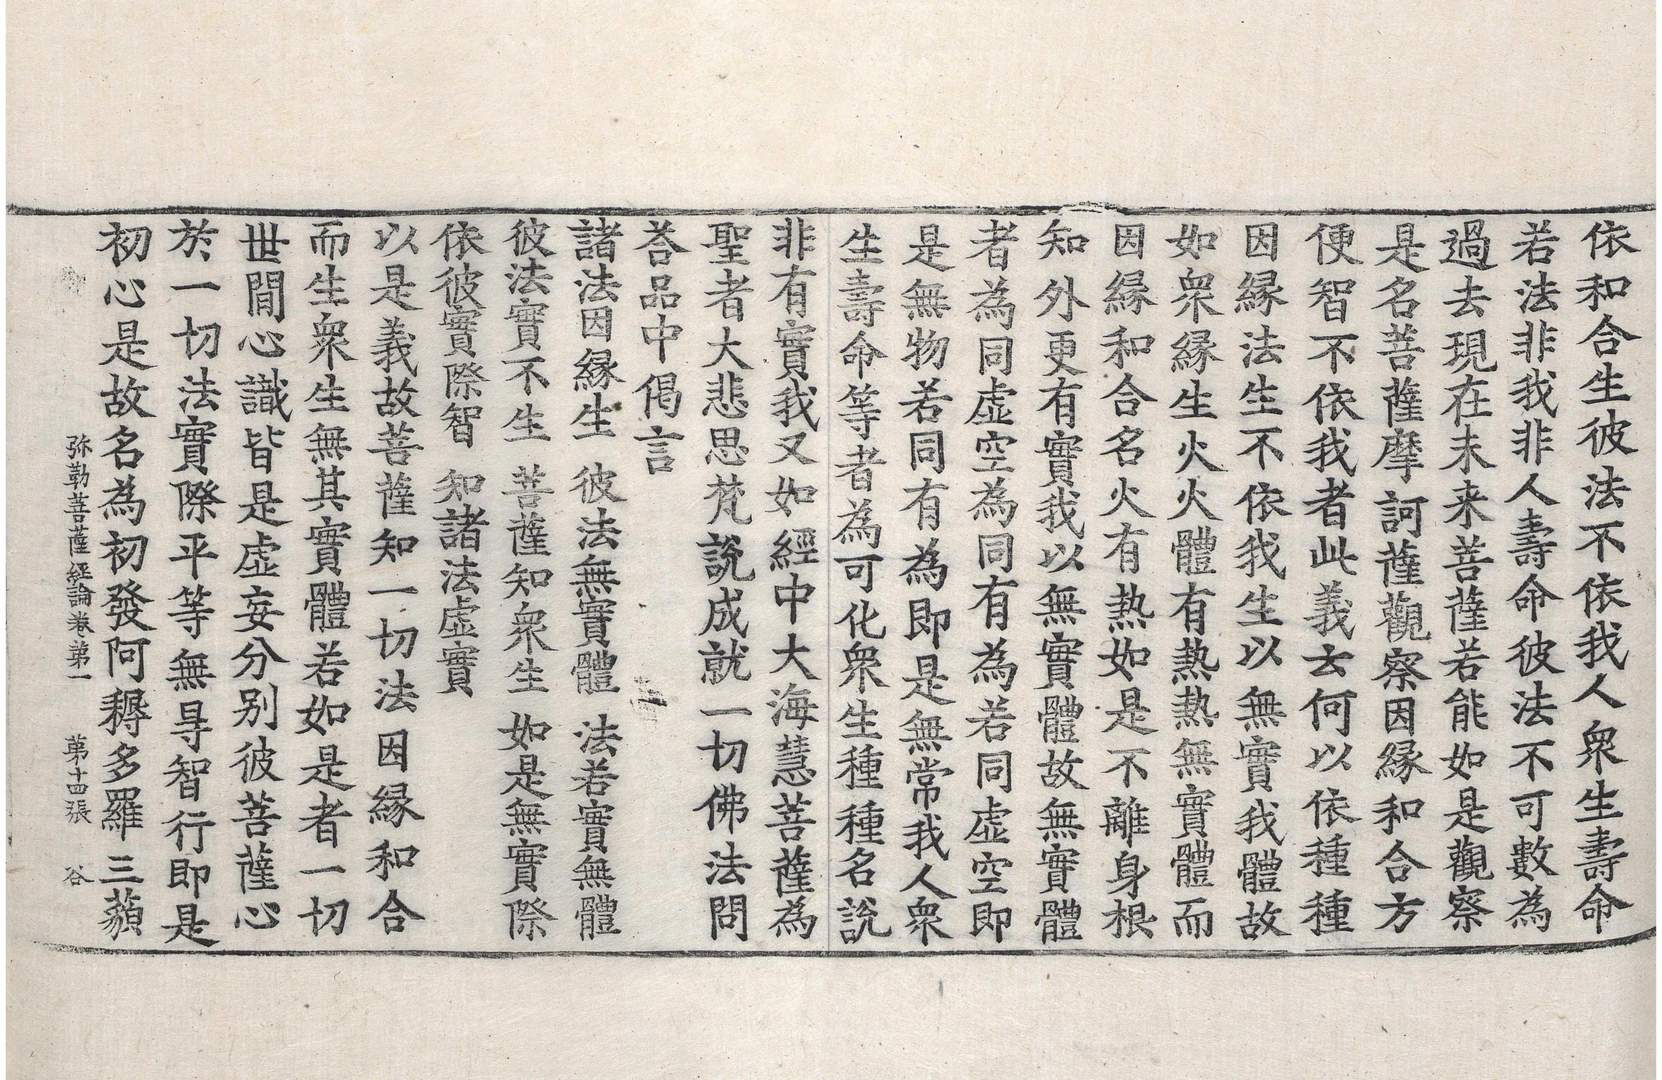 依和合生彼法不依我人衆生壽命
若法非我非人壽命彼法不可數為
過去現在未来菩薩若能如是觀察
是名菩薩摩訶薩觀察因縁和合方
便智不依我者此義云何以依種種
因縁法生不依我生以無實我體故
如衆縁生火火體有熱熱無實體而
因縁和合名火有熱如是不離身根
知外更有實我以無實體故無實體
者為同虛空為同有為若同虛空即
是無物若同有為即是無常我人衆
生壽命等者為可化衆生種種名說
非有實我又如經中大海慧菩薩為
聖者大悲思梵說成就一切佛法問
荅品中偈言
諸法因縁生　彼法無實體　法若實無體
彼法實不生　菩薩知衆生　如是無實際
依彼實際智　知諸法虛實
以是義故菩薩知一切法因縁和合
而生衆生無其實體若如是者一切
世間心識皆是虛妄分别彼菩薩心
於一切法實際平等無㝵智行即是
初心是故名為初發阿耨多羅三藐
弥勒菩薩経論卷苐一　苐十四張　谷